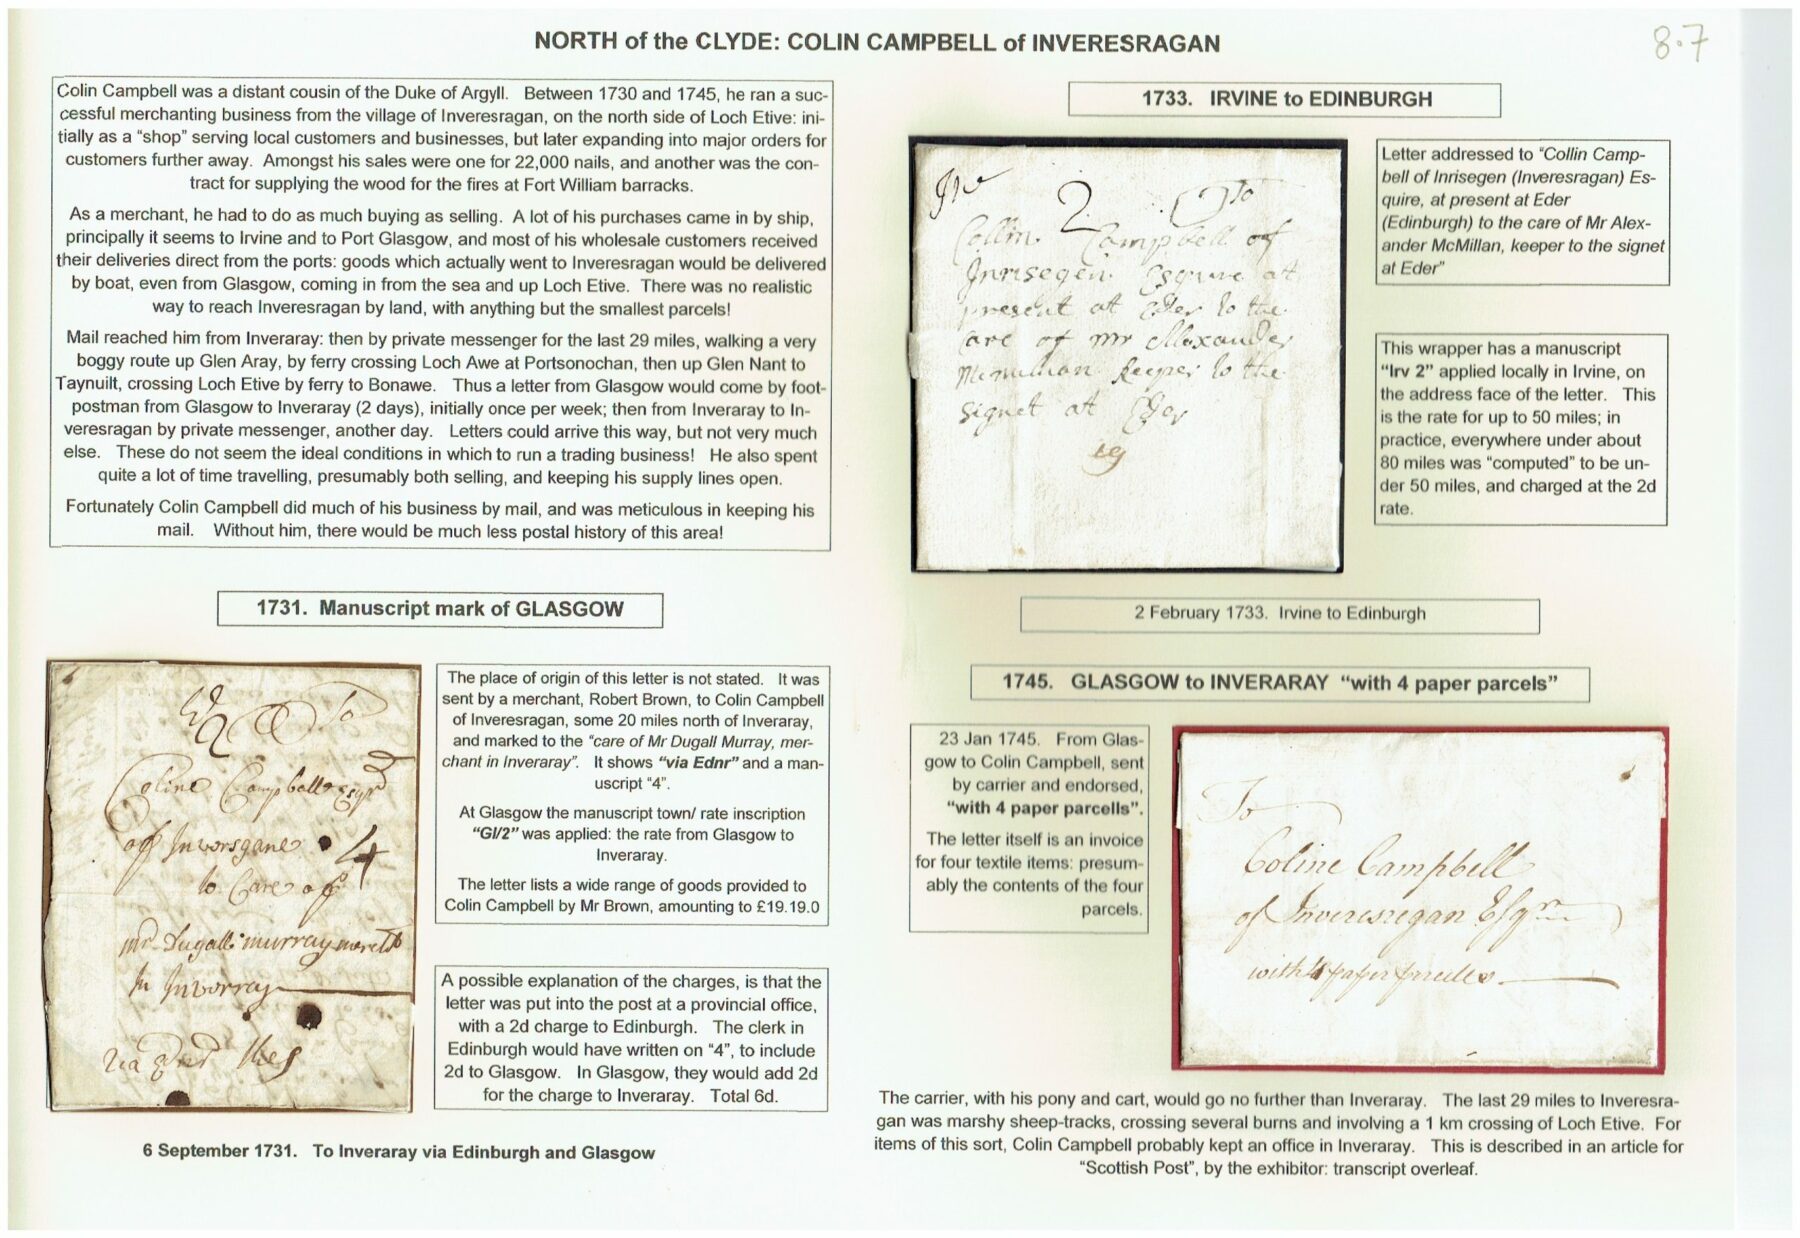 NORTH of the CLYDE: COLIN CAMPBELL of INVERESRAGAN
8.7
Colin Campbell was a distant cousin of the Duke of Argyll. Between 1730 and 1745, he ran a suc-
cessful merchanting business from the village of Inveresragan, on the north side of Loch Etive: ini-
tially as a “shop” serving local customers and businesses, but later expanding into major orders for
customers further away. Amongst his sales were one for 22,000 nails, and another was the con-
tract for supplying the wood for the fires at Fort William barracks.
As a merchant, he had to do as much buying as selling. A lot of his purchases came in by ship,
principally it seems to Irvine and to Port Glasgow, and most of his wholesale customers received
their deliveries direct from the ports: goods which actually went to Inveresragan would be delivered
by boat, even from Glasgow, coming in from the sea and up Loch Etive. There was no realistic
way to reach Inveresragan by land, with anything but the smallest parcels!
Mail reached him from Inveraray: then by private messenger for the last 29 miles, walking a very
boggy route up Glen Aray, by ferry crossing Loch Awe at Portsonochan, then up Glen Nant to
Taynuilt, crossing Loch Etive by ferry to Bonawe. Thus a letter from Glasgow would come by foot-
postman from Glasgow to Inveraray (2 days), initially once per week; then from Inveraray to In-
veresragan by private messenger, another day. Letters could arrive this way, but not very much
else. These do not seem the ideal conditions in which to run a trading business! He also spent
quite a lot of time travelling, presumably both selling, and keeping his supply lines open.
Fortunately Colin Campbell did much of his business by mail, and was meticulous in keeping his
mail. Without him, there would be much less postal history of this area!
1731. Manuscript mark of GLASGOW
To
Coline Campbell Esqr
of Inversgane 4
to Care of
mr Dugall murray mercht
In Inverray
via Ednr
The place of origin of this letter is not stated. It was
sent by a merchant, Robert Brown, to Colin Campbell
of Inveresragan, some 20 miles north of Inveraray,
and marked to the “care of Mr Dugall Murray, mer-
chant in Inveraray”. It shows “via Ednr” and a man-
uscript “4”.
At Glasgow the manuscript town/ rate inscription
“Gl/2” was applied: the rate from Glasgow to
Inveraray.
The letter lists a wide range of goods provided to
Colin Campbell by Mr Brown, amounting to £19.19.0
A possible explanation of the charges, is that the
letter was put into the post at a provincial office,
with a 2d charge to Edinburgh. The clerk in
Edinburgh would have written on “4”, to include
2d to Glasgow. In Glasgow, they would add 2d
for the charge to Inveraray. Total 6d.
6 September 1731. To Inveraray via Edinburgh and Glasgow
1733. IRVINE to EDINBURGH
Irv 2 To
Collin Campbell of
Inrisegen Esquire at
present at Eder to the
care of mr Alexander
Mcmillan keeper to the
signet at Eder
Letter addressed to “Collin Camp-
bell of Inrisegen (Inveresragan) Es-
quire, at present at Eder
(Edinburgh) to the care of Mr Alex-
ander McMillan, keeper to the signet
at Eder”
This wrapper has a manuscript
“Irv 2” applied locally in Irvine, on
the address face of the letter. This
is the rate for up to 50 miles; in
practice, everywhere under about
80 miles was “computed” to be un-
der 50 miles, and charged at the 2d
rate.
2 February 1733. Irvine to Edinburgh
1745. GLASGOW to INVERARAY “with 4 paper parcels”
23 Jan 1745. From Glas-
gow to Colin Campbell, sent
by carrier and endorsed,
“with 4 paper parcells”.
The letter itself is an invoice
for four textile items: presum-
ably the contents of the four
parcels.
To
Coline Campbell
of Inveresregan Esqr
with 4 paper parcells
The carrier, with his pony and cart, would go no further than Inveraray. The last 29 miles to Inveresra-
gan was marshy sheep-tracks, crossing several burns and involving a 1 km crossing of Loch Etive. For
items of this sort, Colin Campbell probably kept an office in Inveraray. This is described in an article for
“Scottish Post”, by the exhibitor: transcript overleaf.